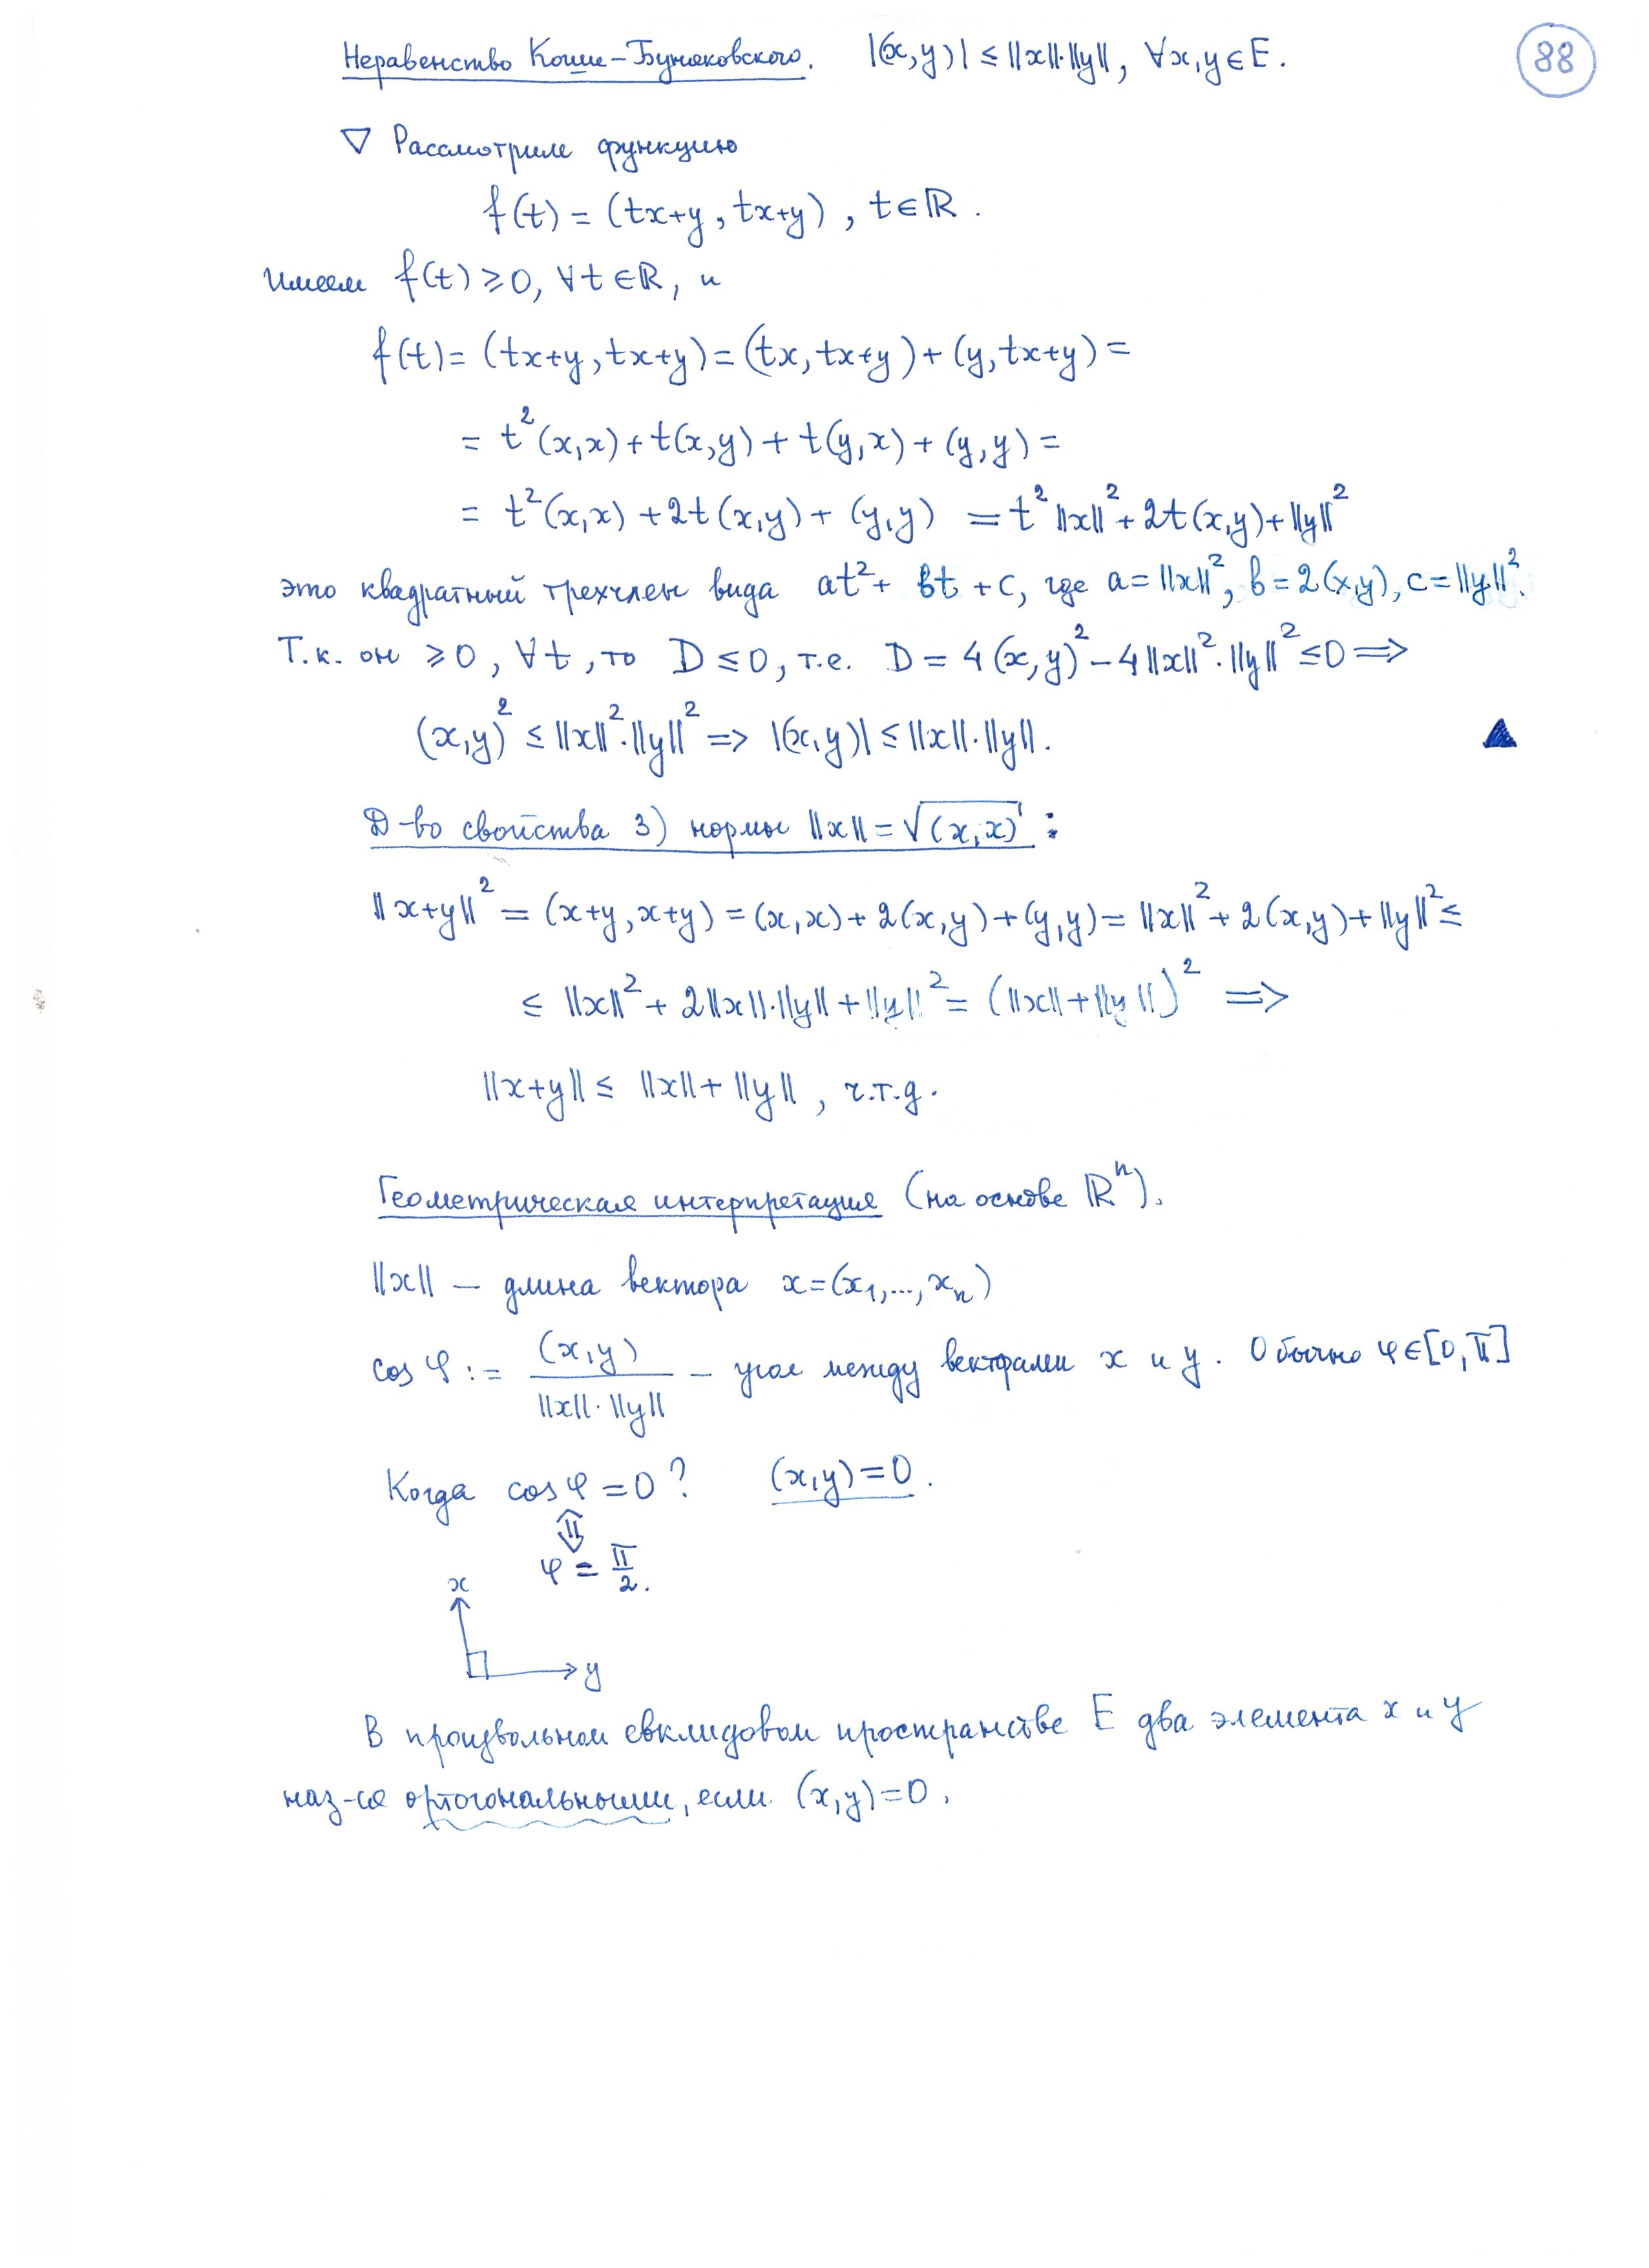 Неравенство Коши-Буняковского. |(x,y)| ≤ ||x||·||y||, ∀x,y∈E. 88
▽ Рассмотрим функцию
f(t) = (tx+y, tx+y), t∈ℝ.
Имеем f(t) ≥ 0, ∀t∈ℝ, и
f(t) = (tx+y, tx+y) = (tx, tx+y) + (y, tx+y) =
= t²(x,x) + t(x,y) + t(y,x) + (y,y) =
= t²(x,x) + 2t(x,y) + (y,y) = t²||x||² + 2t(x,y) + ||y||²
это квадратный трехчлен вида at² + bt + c, где a = ||x||², b = 2(x,y), c = ||y||².
Т.к. он ≥ 0, ∀t, то D ≤ 0, т.е. D = 4(x,y)² - 4||x||²·||y||² ≤ 0 ⇒
(x,y)² ≤ ||x||²·||y||² ⇒ |(x,y)| ≤ ||x||·||y||. ▲
Д-во свойства 3) нормы ||x|| = √(x,x) :
||x+y||² = (x+y, x+y) = (x,x) + 2(x,y) + (y,y) = ||x||² + 2(x,y) + ||y||² ≤
≤ ||x||² + 2||x||·||y|| + ||y||² = (||x|| + ||y||)² ⇒
||x+y|| ≤ ||x|| + ||y||, ч.т.д.
Геометрическая интерпретация (на основе ℝⁿ).
||x|| — длина вектора x = (x₁,...,xₙ)
cos φ := (x,y) / ||x||·||y|| — угол между векторами x и y. Обычно φ∈[0,π]
Когда cos φ = 0? (x,y) = 0.
⇕
φ = π/2.
x
y
В произвольном евклидовом пространстве E два элемента x и y
наз-ся ортогональными, если (x,y) = 0.